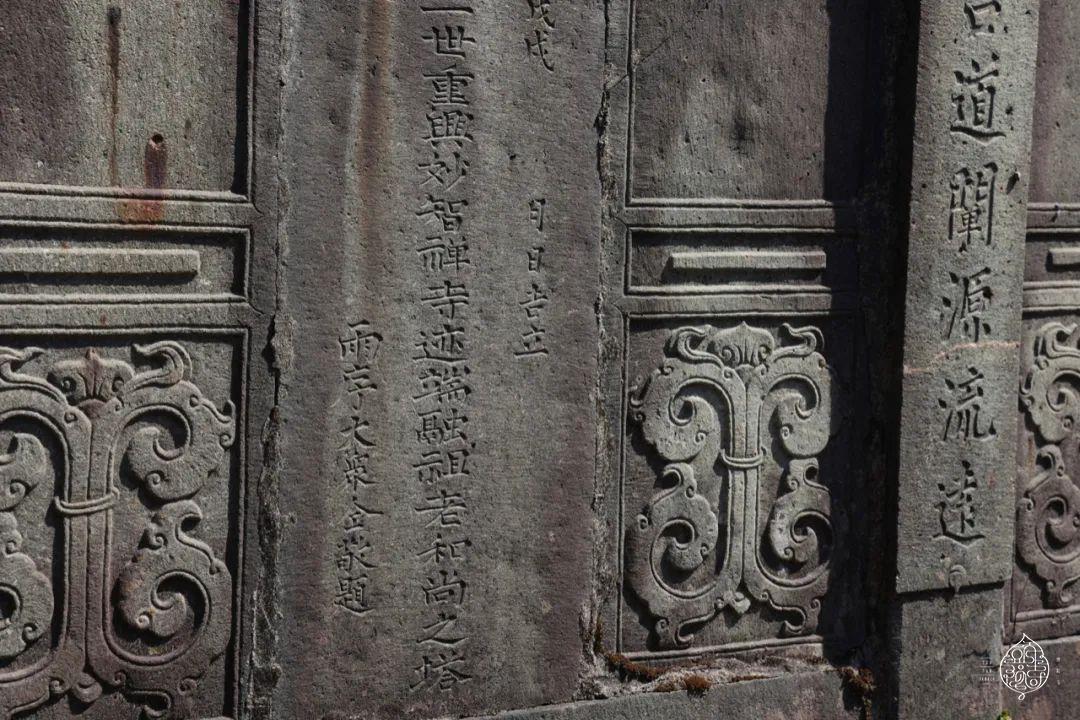 道闡源流遠
戊戌 月日吉立
世重興妙智禪寺迹端融祖老和尚之塔
兩序大衆仝敬題